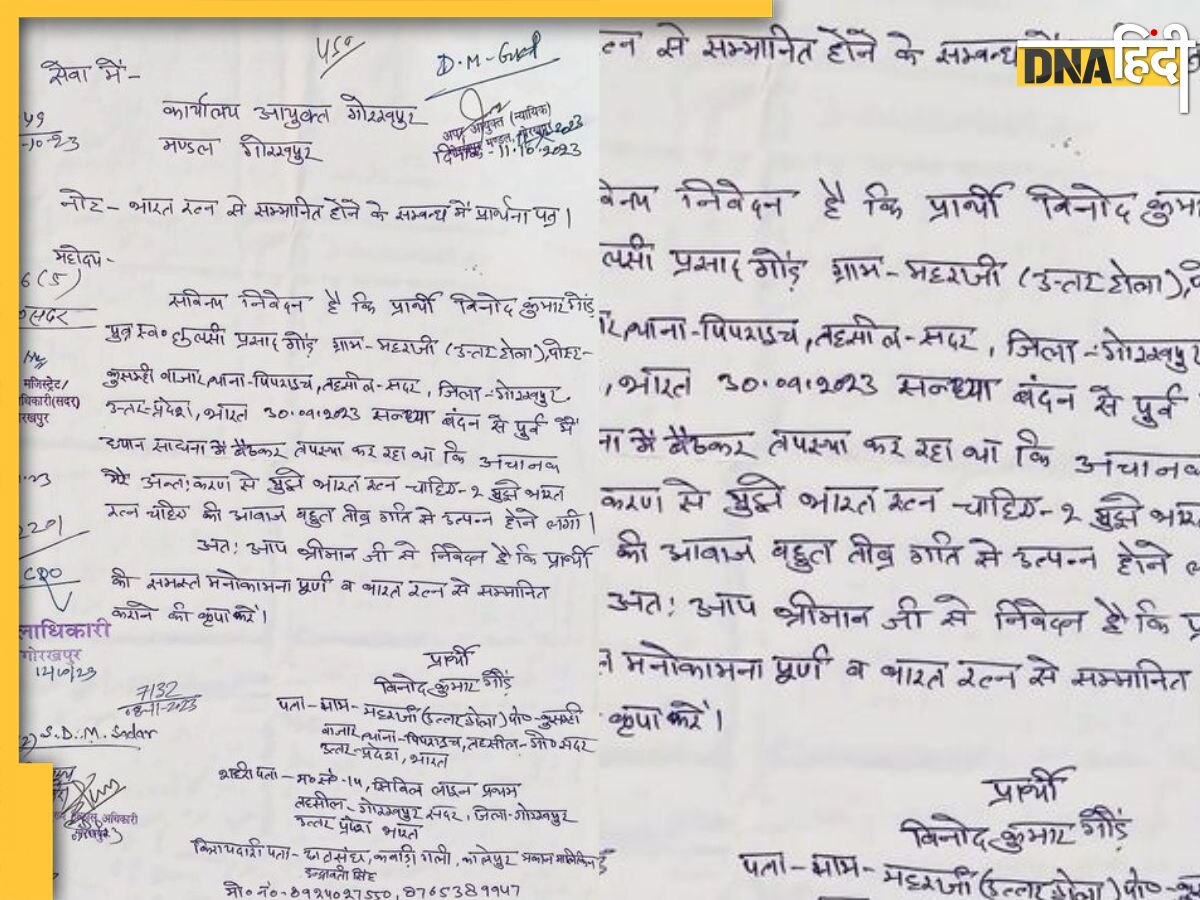 450
D.M-Gkd
सेवा में-
कार्यालय आयुक्त गोरखपुर
मण्डल गोरखपुर
अपर आयुक्त (न्यायिक)
दिनांक-11.10.2023
-10-23
नोट- भारत रत्न से सम्मानित होने के सम्बन्ध में प्रार्थना पत्र।
महोदय-
सविनय निवेदन है कि प्रार्थी विनोद कुमार गौंड़
पुत्र स्व० तुलसी प्रसाद गौंड़ ग्राम-महराजी (उत्तर टोला), पोस्ट-
कुसम्ही बाजार, थाना-पिपराइच, तहसील-सदर, जिला-गोरखपुर
उत्तर-प्रदेश, भारत 30.09.2023 सन्ध्या बंदन से पुर्व में
ध्यान साधना में बैठकर तपस्या कर रहा था कि अचानक
मेरे अन्तःकरण से मुझे भारत रत्न चाहिए-2 मुझे भारत
रत्न चाहिए की आवाज बहुत तीव्र गति से उत्पन्न होने लगी।
अतः आप श्रीमान जी से निवेदन है कि प्रार्थी
की समस्त मनोकामना पूर्ण व भारत रत्न से सम्मानित
कराने की कृपा करें।
प्रार्थी
विनोद कुमार गौंड़
पता-ग्राम-महराजी (उत्तर टोला) पो०-कुसम्ही
बाजार, थाना-पिपराइच, तहसील-गो० सदर
उत्तर-प्रदेश, भारत
शहरी पता- म० सं०-14, सिविल लाइन प्रथम
तहसील-गोरखपुर सदर, जिला-गोरखपुर
उत्तर प्रदेश भारत
किरायदारी पता- कबाड़ी गली, मकान मालिकिन
इन्द्रावती सिंह
मो० नं०-8924027550, 8765389947
6(5)
सदर
मजिस्ट्रेट/
धिकारी(सदर)
रखपुर
2201
CDO
लाधिकारी
गोरखपुर
12/10/23
7132
08-11-2023
2) S.D.M. Sadar
अधिकारी
DNA हिंदी
त्न से सम्मानित होने के सम्बन्ध
विनय निवेदन है कि प्रार्थी विनोद कुमा
लसी प्रसाद गौंड़ ग्राम-महराजी (उत्तर टोला),
र, थाना-पिपराइच, तहसील-सदर, जिला-गोरखपुर
, भारत 30.09.2023 सन्ध्या बंदन से पुर्व
ना में बैठकर तपस्या कर रहा था कि अचानक
करण से मुझे भारत रत्न चाहिए-2 मुझे भार
की आवाज बहुत तीव्र गति से उत्पन्न होने ल
अतः आप श्रीमान जी से निवेदन है कि प्र
त मनोकामना पूर्ण व भारत रत्न से सम्मानित
कृपा करें।
प्रार्थी
विनोद कुमार गौंड़
पता-ग्राम-महराजी (उत्तर टोला) पो०-कु